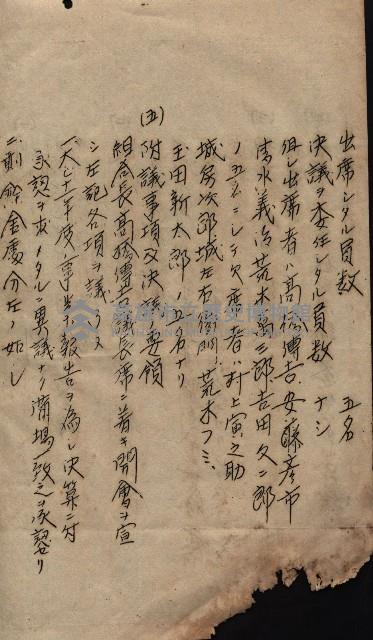 出席シタル員数 五名
決議ヲ委任シタル員数 ナシ
但シ出席者ハ高橋傳吉、安藤彦市
清水義治荒木萬三郎吉田久二郎
ノ五名ニシテ欠席者ハ村上寅之助
城房次郎城左右衛門荒木フミ、
玉田新太郎ノ五名ナリ
(五) 附議事項及決議要領
組合長高橋傳吉議長席ニ着キ開會ヲ宣
シ左記各項ヲ議ス
一、大正十二年度事業報告ヲ為シ決算ニ付
承認ヲ求メタルニ異議ナク満場一致之ヲ承認セリ
二、剰餘金處分左ノ如シ